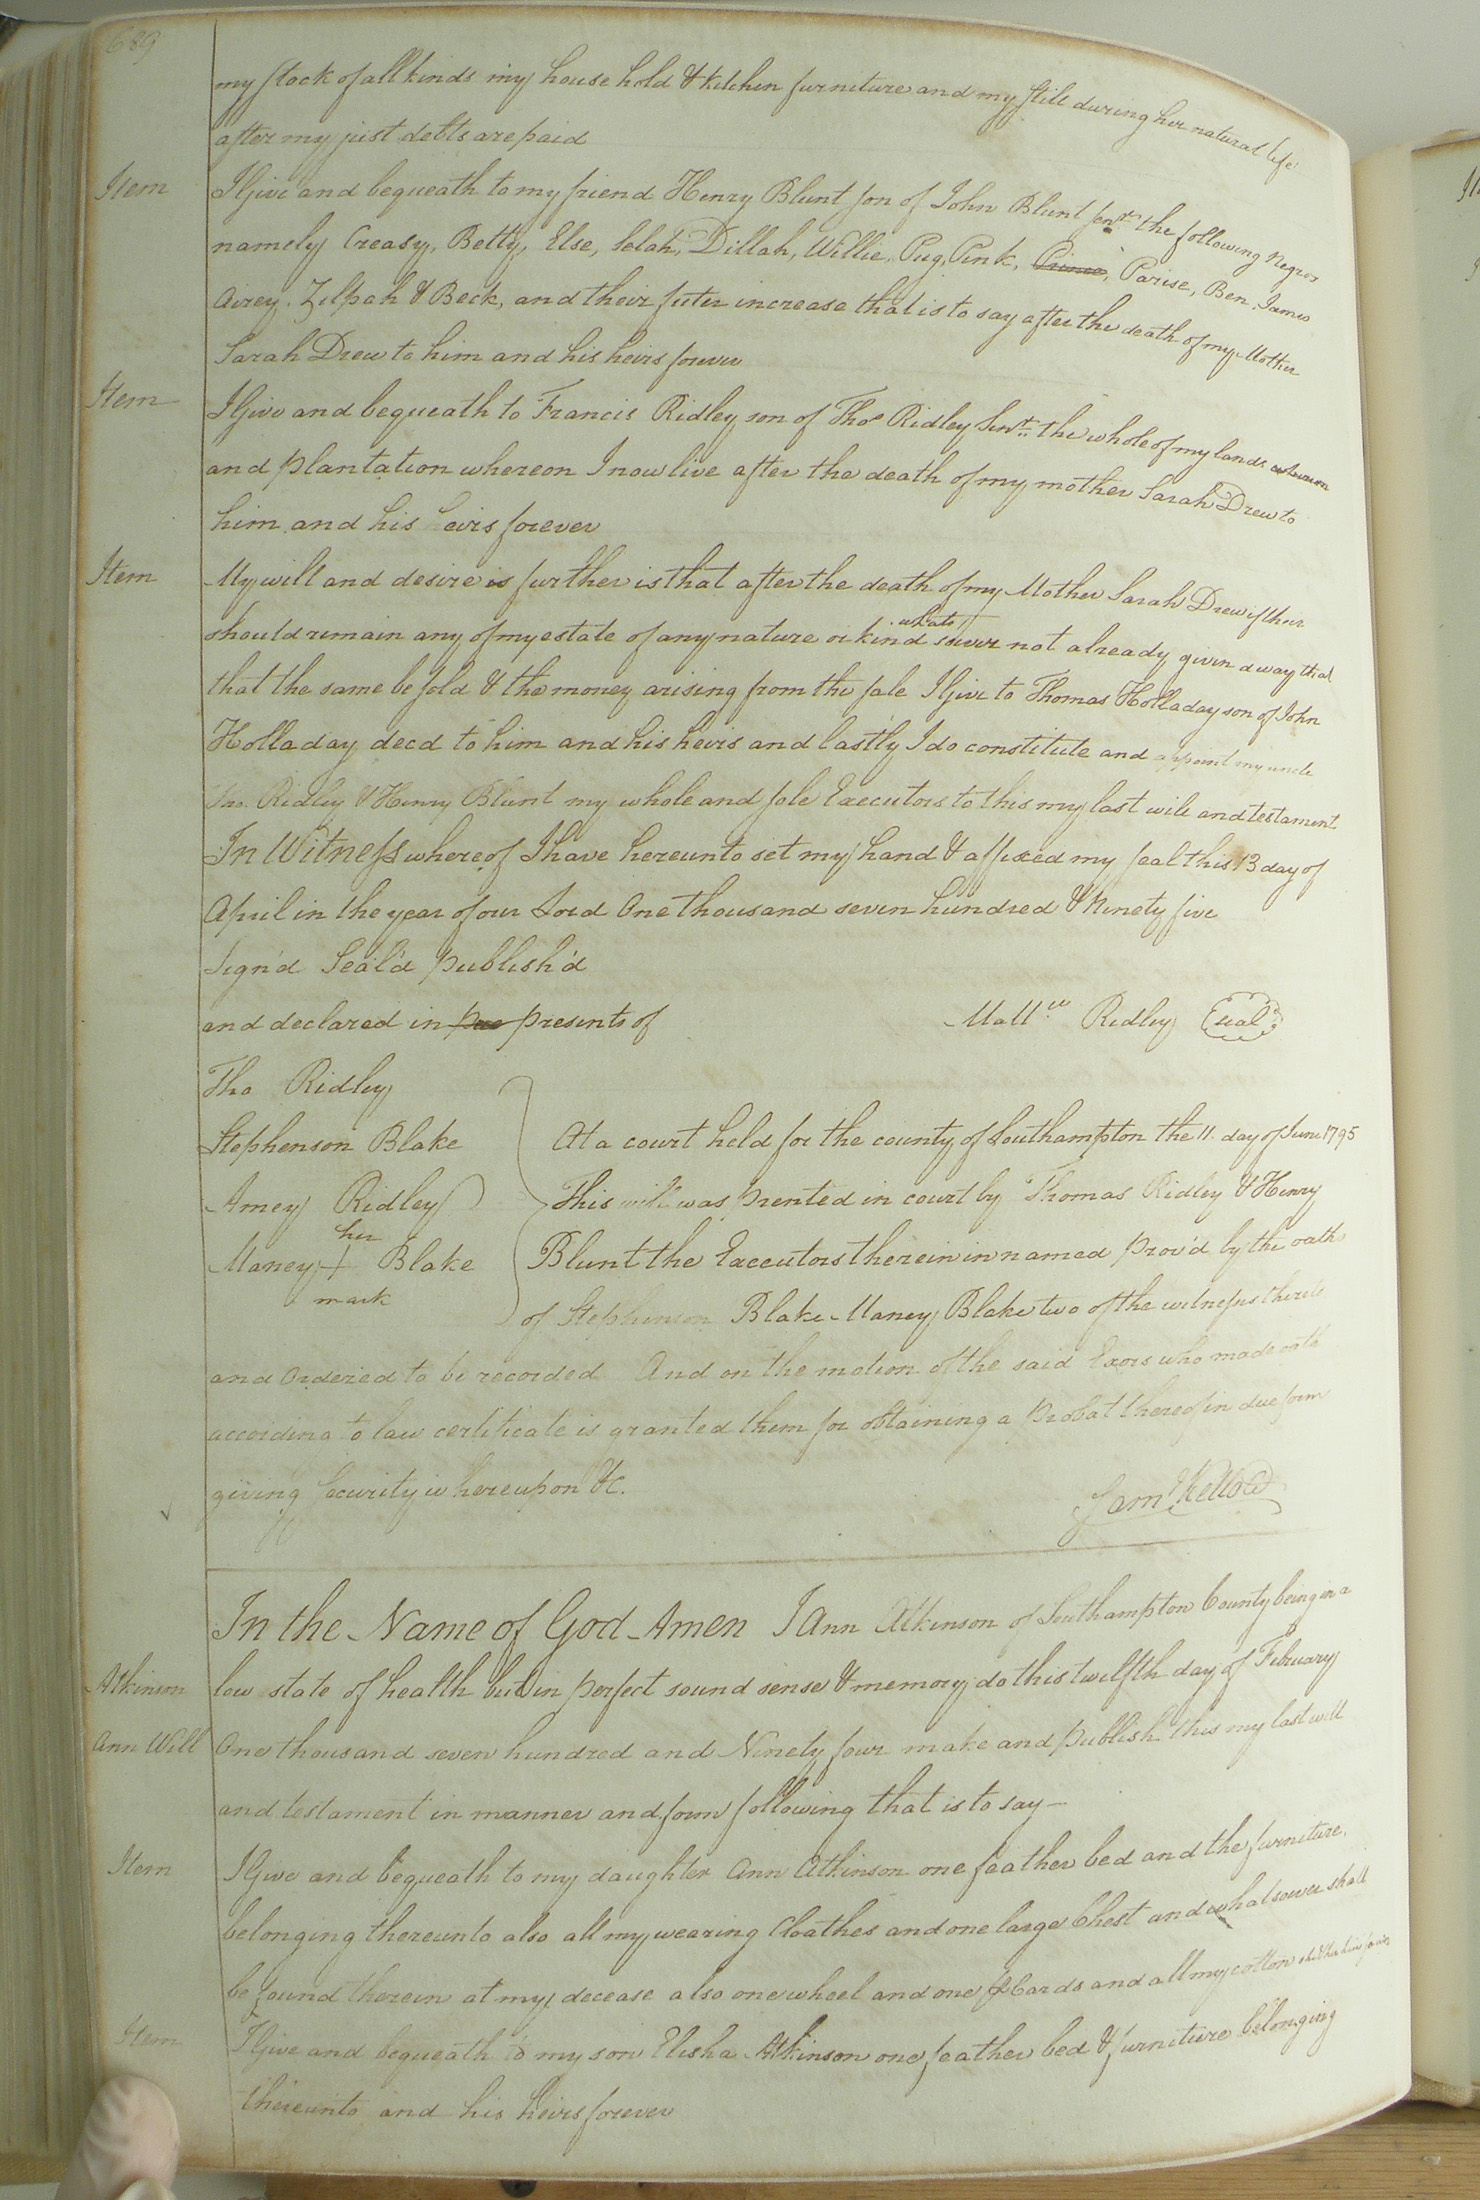 689
my stock of all kinds my house hold & kitchen furniture and my still during her natural life
after my just debts are paid
Item I Give and bequeath to my friend Henry Blunt son of John Blunt Senr. the following Negroes
namely Creasy, Betty, Else, Selah, Dillah, Willie, Pug, Pink, Parise, Ben, James
Airey, Zilpah & Beck, and their futer increase that is to say after the death of my Mother
Sarah Drew to him and his heirs forever
Item I Give and bequeath to Francis Ridley son of Thos Ridley Senr. the whole of my lands whereon
and plantation whereon I now live after the death of my mother Sarah Drew to
him and his heirs forever
Item My will and desire is further is that after the death of my Mother Sarah Drew if their
should remain any of my estate of any nature or kind whatsoever not already given away that
that the same be sold & the money arising from the sale I Give to Thomas Holladay son of John
Holladay decd to him and his heirs and lastly I do constitute and appoint my uncle
Tho. Ridley & Henry Blunt my whole and sole Executors to this my last will and testament
In Witness whereof I have hereunto set my hand & affixed my seal this 13 day of
April in the year of our Lord One thousand seven hundred & Ninety five
Sign'd Seal'd publish'd
and declared in pre presents of Matt.w Ridley seal
Tho Ridley
Stephenson Blake At a court held for the county of Southampton the 11. day of June 1795
Amey Ridley This will was prented in court by Thomas Ridley & Henry
her
Maney + Blake Blunt the Executors therein in named prov'd by the oaths
mark
of Stephenson Blake Maney Blake two of the witnesses thereto
and Ordered to be recorded And on the motion of the said Exors who made oath
according to law certificate is granted them for obtaining a Probat thereof in due form
giving Security whereupon &c.
Saml Kello CC
In the Name of God Amen I Ann Atkinson of Southampton County being in a
Atkinson low state of health but in perfect sound sense & memory do this twelfth day of February
Ann Will One thousand seven hundred and Ninety four make and publish this my last will
and testament in manner and form following that is to say—
Item I Give and bequeath to my daughter Ann Atkinson one feather bed and the furniture
belonging thereunto also all my wearing Cloathes and one large Chest and whatsoever shall
be found therein at my decease also one wheel and one pr Cards and all my cotton
Item I Give and bequeath to my son Elisha Atkinson one feather bed & furniture belonging
thereunto and his heirs forever